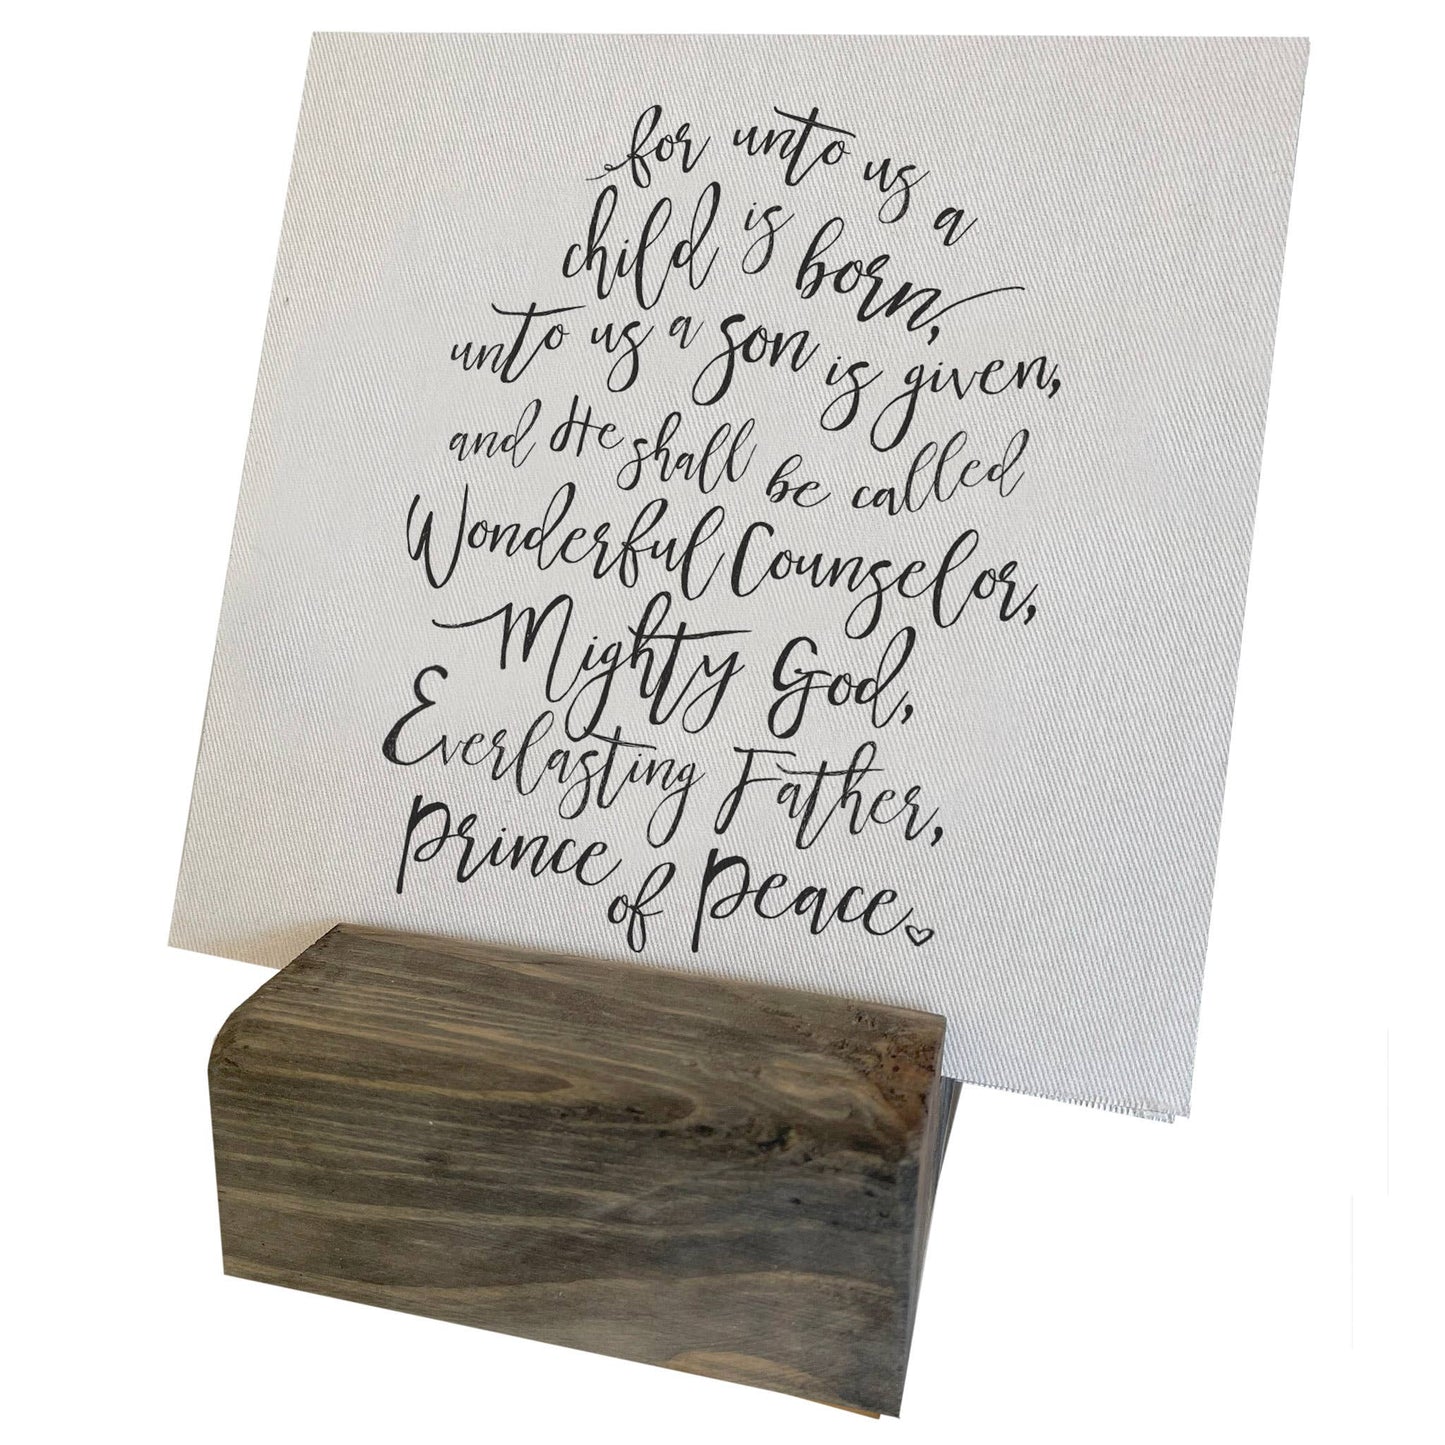 for unto us a
child is born,
unto us a son is given,
and He shall be called
Wonderful Counselor,
Mighty God,
Everlasting Father,
Prince of Peace.